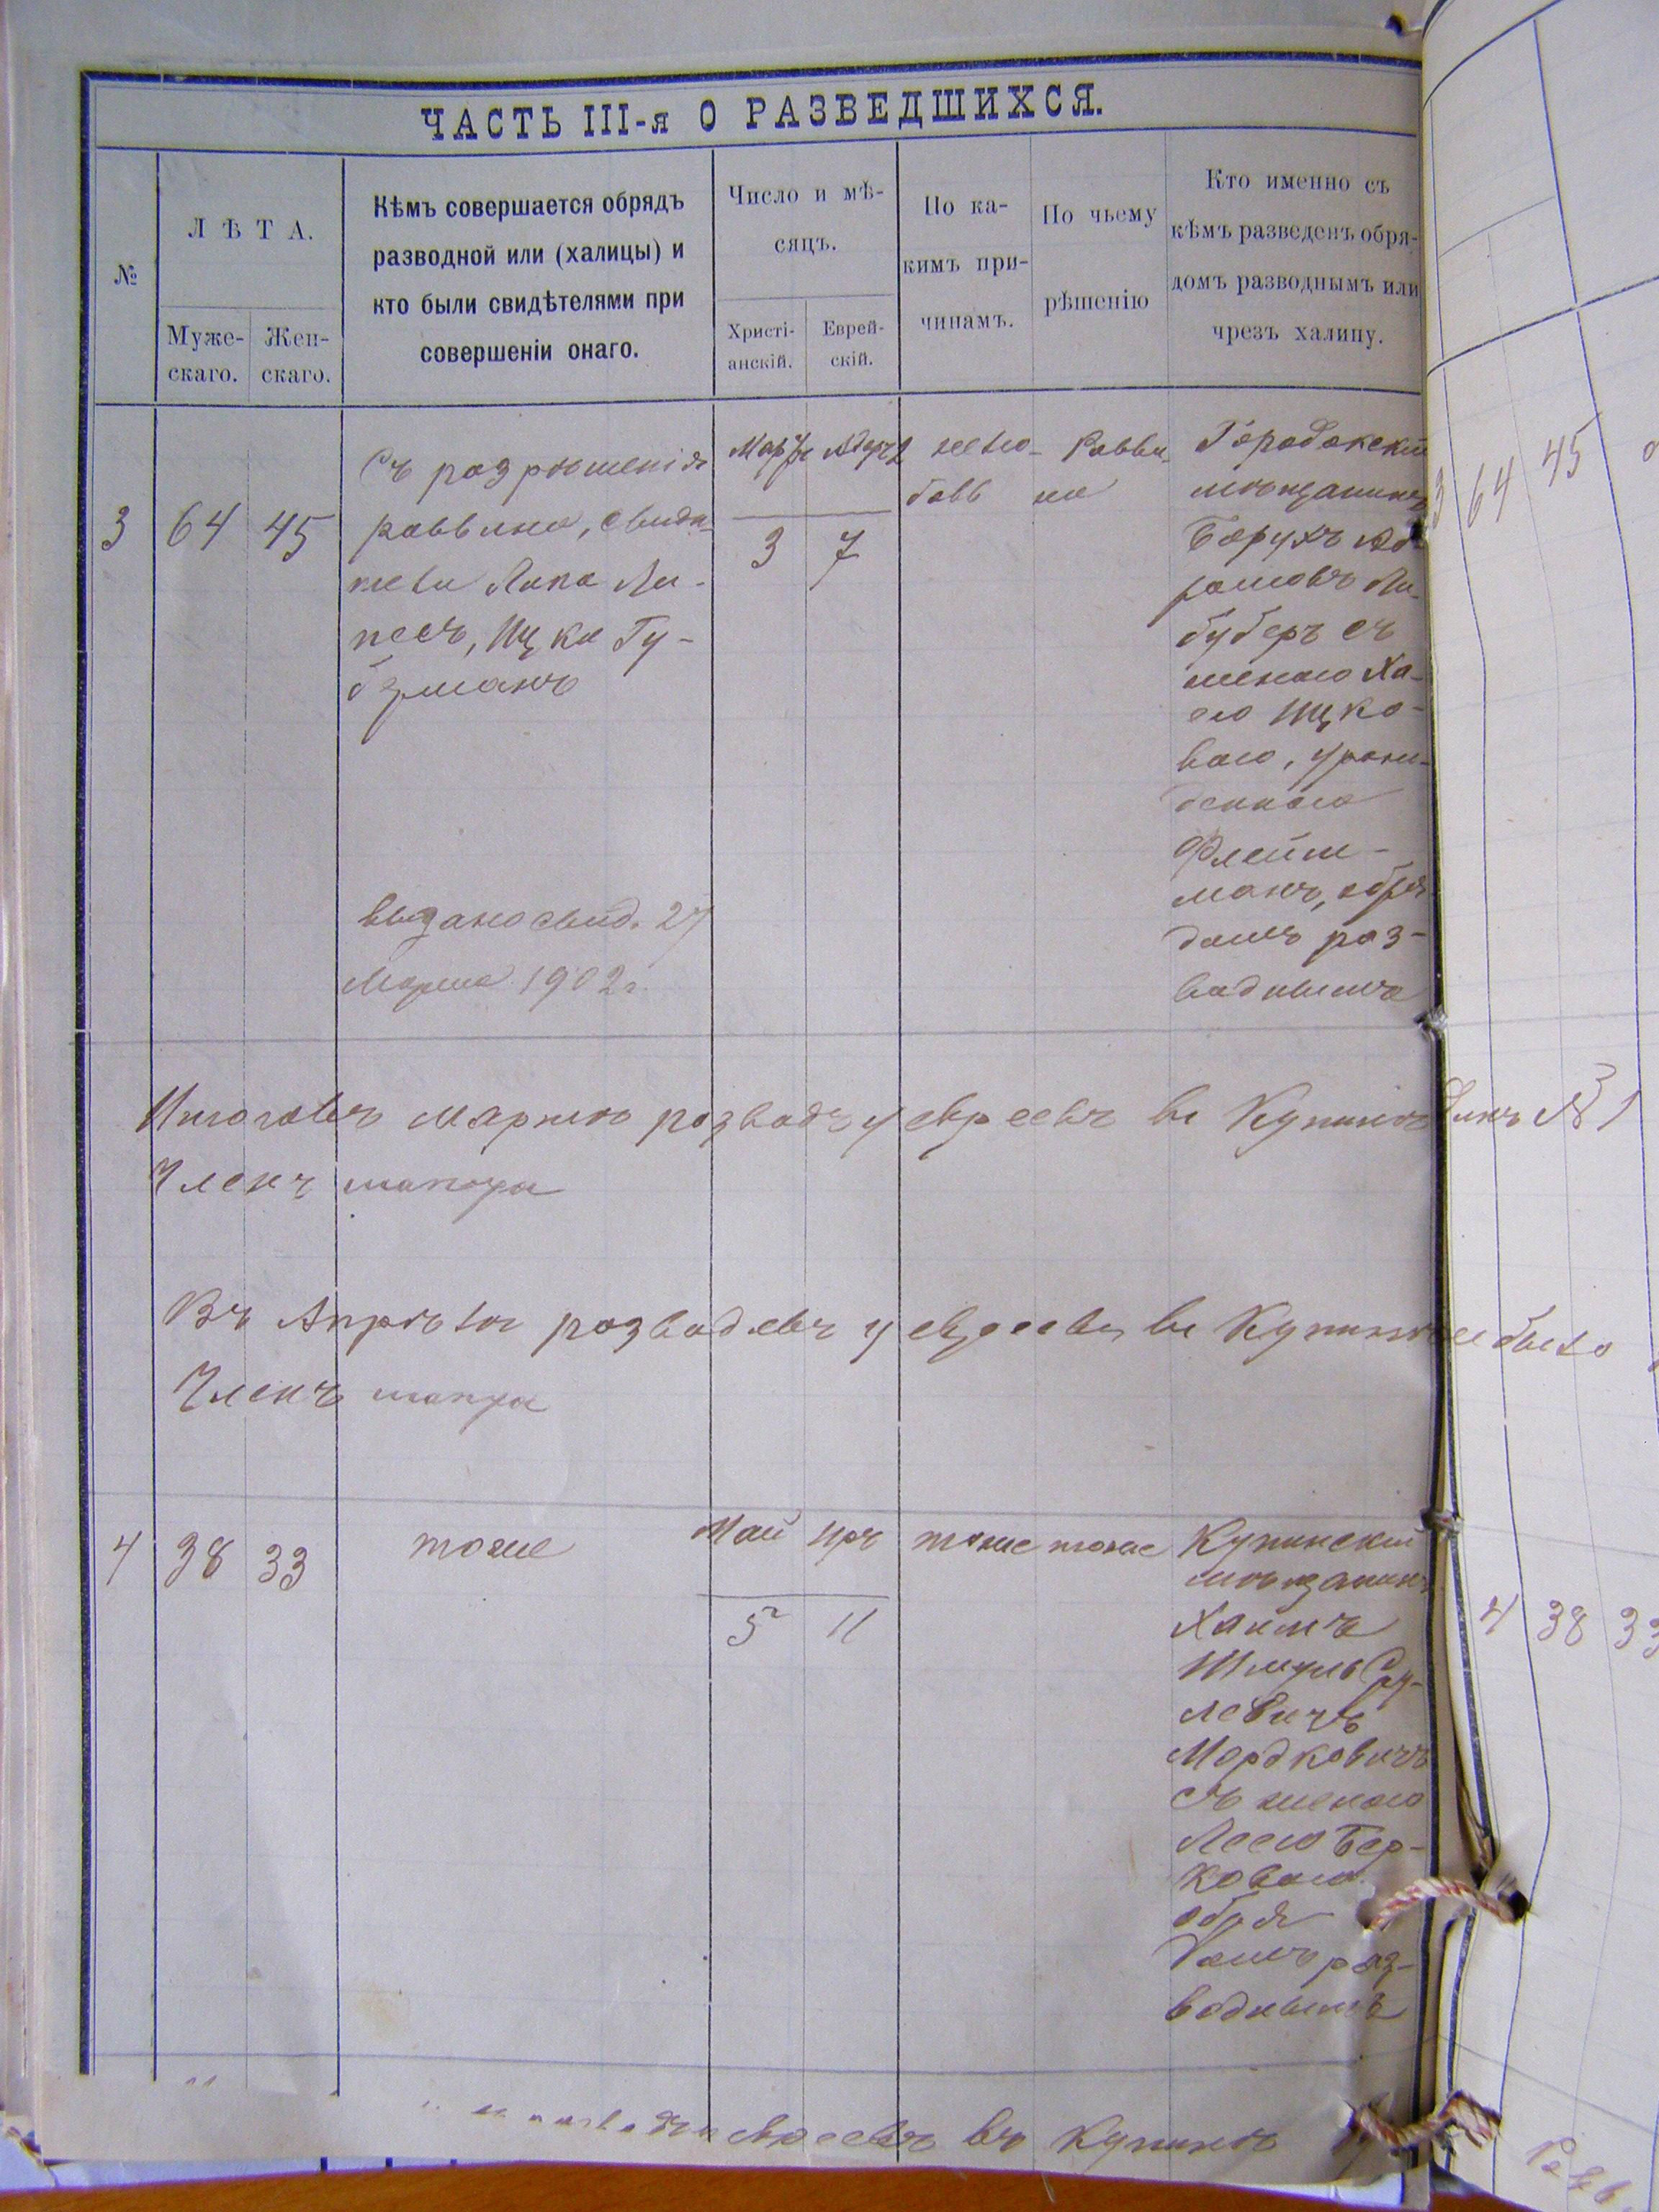 ЧАСТЬ III-я О РАЗВЕДШИХСЯ.
№
ЛѢТА.
Муже-
скаго.
Жен-
скаго.
Кѣмъ совершается обрядъ
разводной или (халицы) и
кто были свидѣтелями при
совершеніи онаго.
Число и мѣ-
сяцъ.
Христі-
анскій.
Еврей-
скій.
По ка-
кимъ при-
чинамъ.
По чьему
рѣшенію
Кто именно съ
кѣмъ разведенъ обря-
домъ разводнымъ или
чрезъ халицу.
3
64
45
Съ разрѣшенія
раввина, свидѣ-
тели Липа Ли-
песъ, Ицко Гу-
берманъ
выдано свид. 27
Марта 1902 г.
Мартъ
3
Адаръ 2
7
нелю-
бовь
Равви-
на
Городокскій
мѣщанинъ
Борухъ Аб-
рамовъ Ли-
буберъ съ
женою Ха-
ею Ицко-
вою, урож-
денною
Флейш-
манъ, обря-
домъ раз-
воднымъ
3 64 45
Итого въ Мартѣ разводъ у евреевъ въ Купинѣ Одинъ № 1
Членъ
Въ Апрѣлѣ разводовъ у евреевъ въ Купинѣ не было
Членъ
4
38
33
тоже
Май
5
Іръ
11
тоже
тоже
Купинскій
мѣщанинъ
Хаимъ
Шмуль Сру-
левичъ
Мордковичъ
съ женою
Леею Бер-
ковою
обря
домъ раз-
воднымъ
4 38 33
евреевъ въ Купинѣ